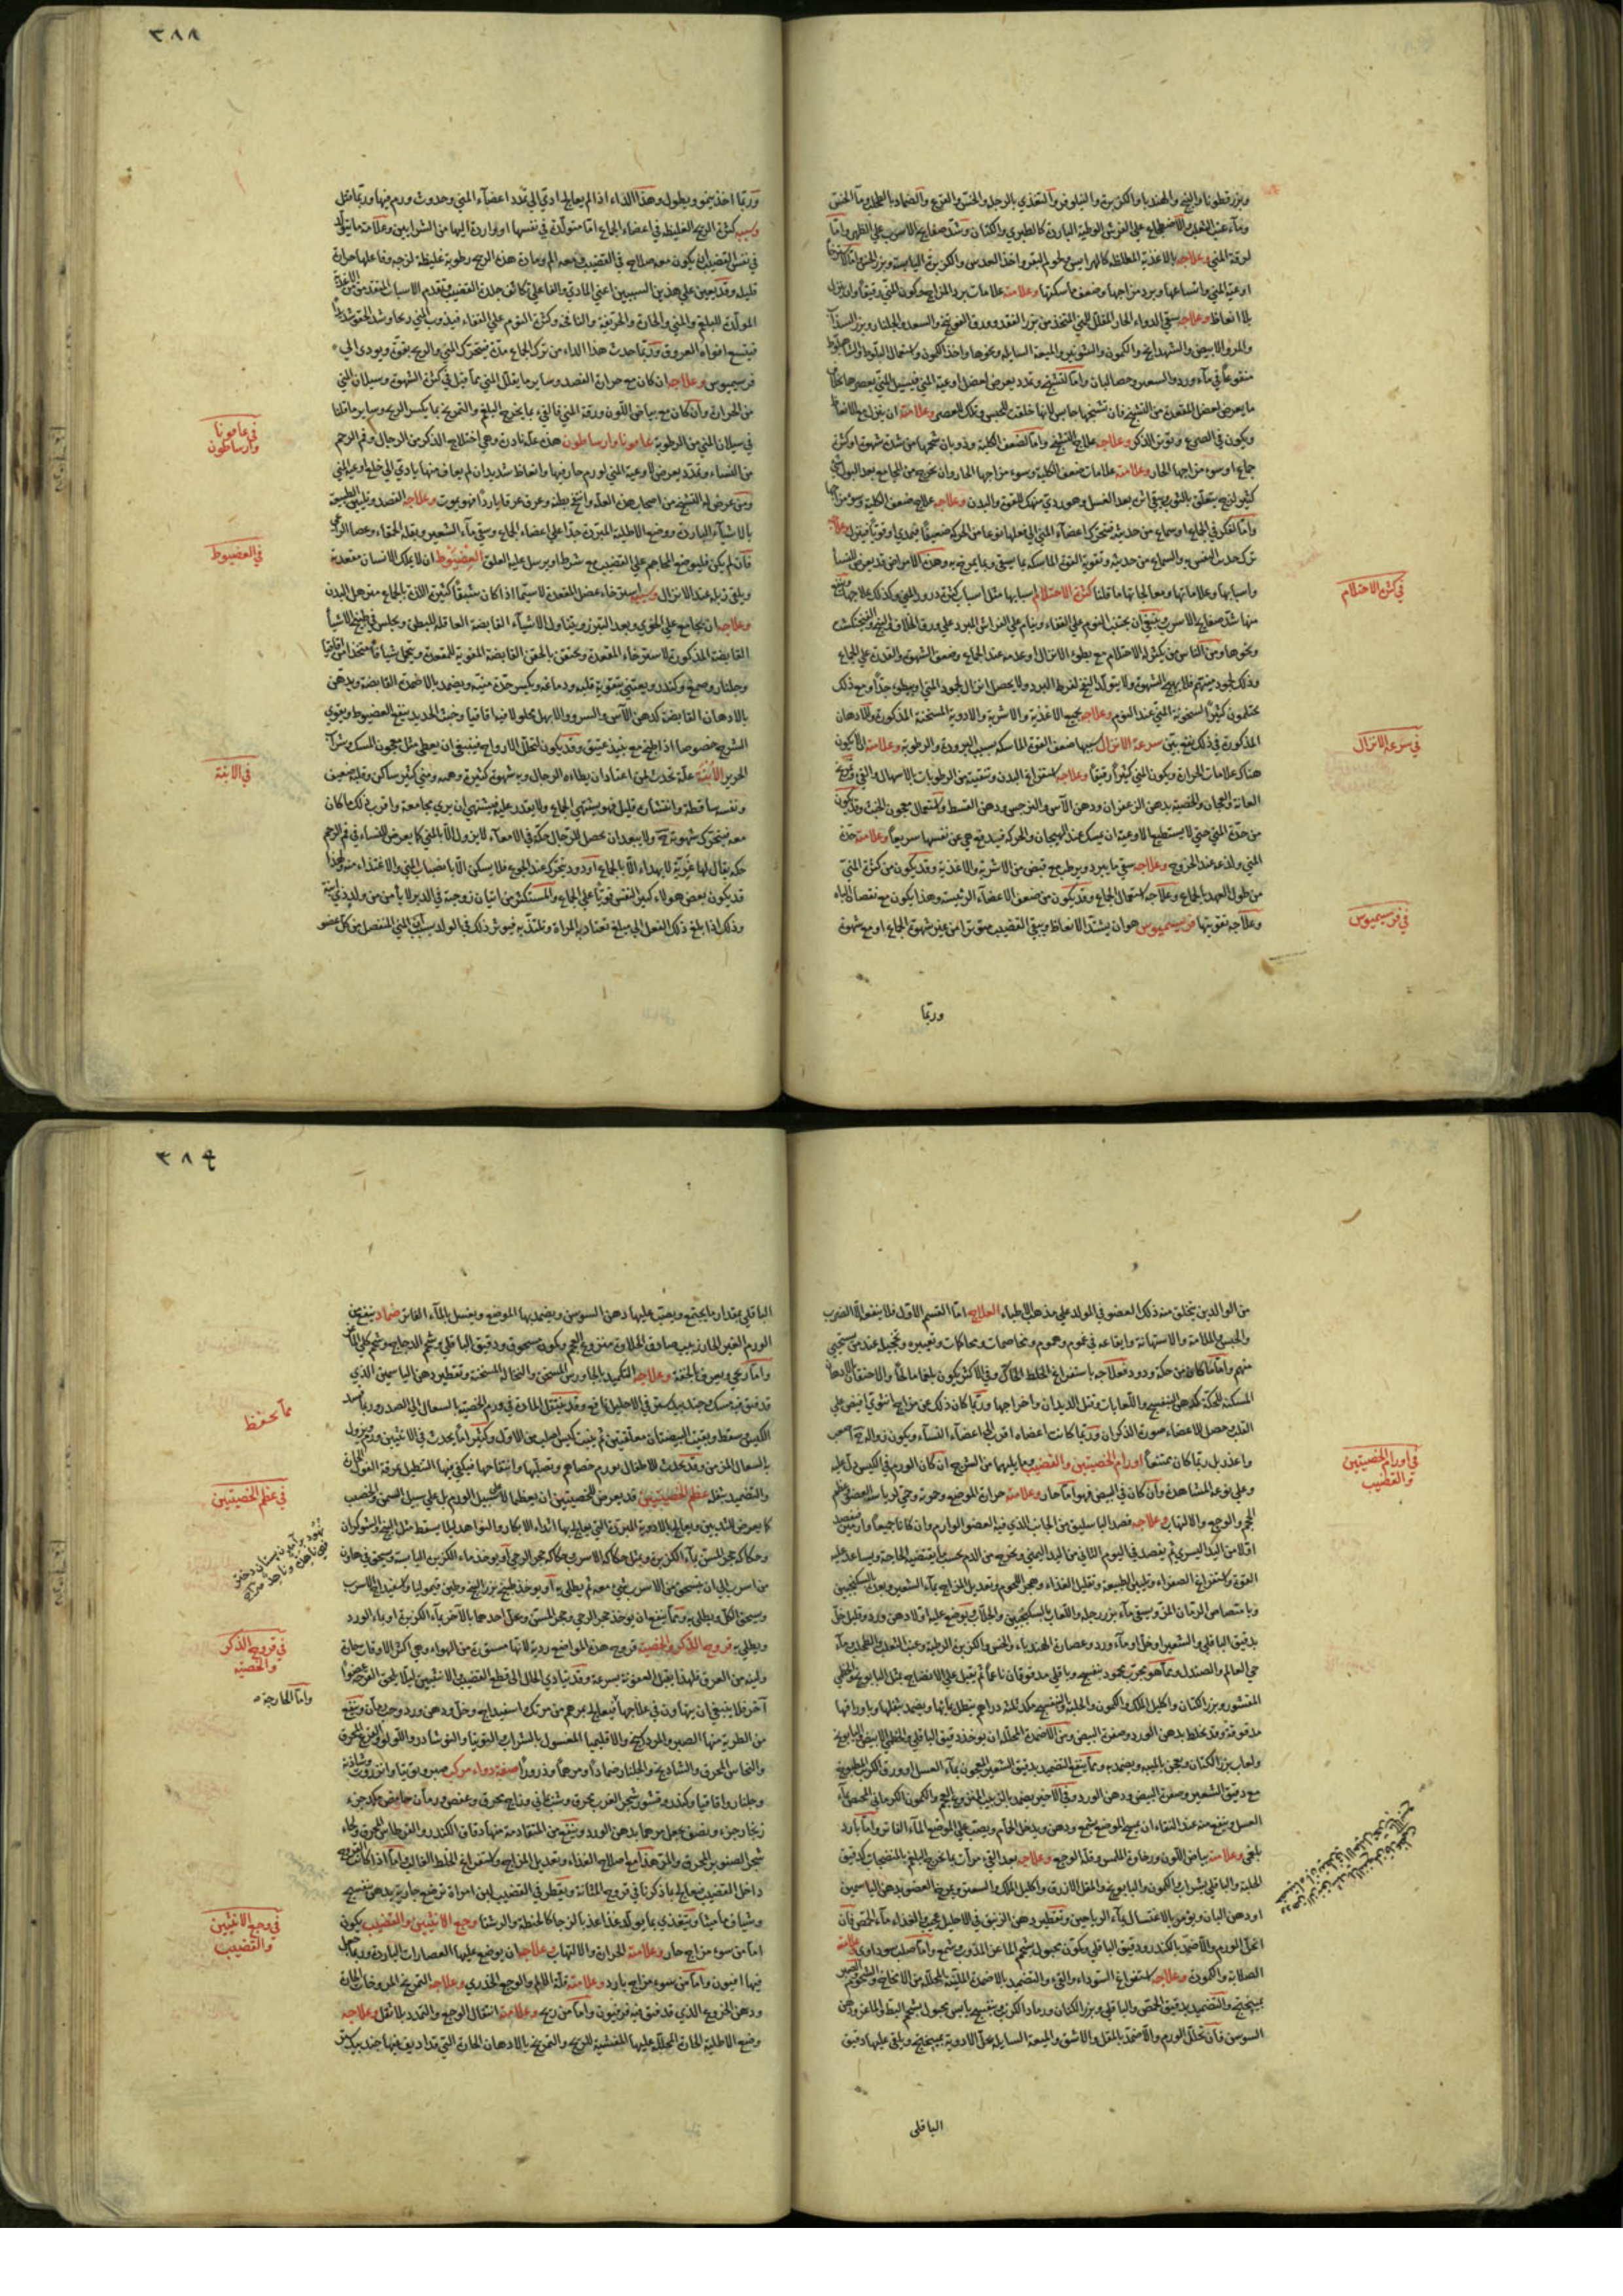 ٣٨٨
وبزر قطونا والبنج والهندبا والكزبرة والنيلوفر والتغذي بالرجلة والخس والقرع والضماد بالطحلب وماء الخس
وماء عنب الثعلب والاضطجاع على الفرش الوطية الباردة كالطبري والكتان وشد صفايح الاسرب على الظهر واما
لرقة المني وعلاجه بالاغذية المغلظة كالهرايس ولحوم البقر واخذ العدس والكزبرة اليابسة وبزر الخس
اوعية المني واتساعها وبرد مزاجها وضعف ماسكتها وعلامته علامات برد المزاج وكون المني رقيقا وان ينزل
بلا انعاظ وعلاجه سقي الدواء الحار المقلل للمني المتخذ من بزر الفقد وورق الفوتنج والسعد والجلنار وبزر السذاب
والمرو الابيض والشهدانج والكمون والشونيز والميعة السايلة ونحوها واخذ الكمون واستعمال البلوط
منقوعا في ماء ورد والسعد وحصالبان واما لتشنج وتمدد يعرض لعضل اوعية المني فيسيل المني بعصرها
ما يعرض لعضل المقعدة من التشنج فان تشنجها حابس لانها خلقت للحبس وتلك للعصر وعلامته ان ينزل مع الانعاظ
ويكون في الصرع وتوتر الذكر وعلاجه علاج التشنج واما لضعف الكلية وذوبان شحمها من شدة شهوة او كثرة
جماع او سوء مزاجها الحار وعلامته علامات ضعف الكلية وسوء مزاجها الحار وان يخرج من المجامع بعد البول شيء
كثير لزج يتعلق بالثوب يبقى اثره بعد الغسل وهو ردي منهك للقوة والبدن وعلاجه علاج ضعف الكلية وسوء مزاجها
واما لفكر في الجماع او سماع من حديثه فتتحرك اعضاء المني الى فعلها نوعا من الحركة ضعيفا فيمذي او قويا فينزل وعلاجه
ترك حديث النفس به والسماع من حديثه وتقوية القوة الماسكة بما يسقى وبما يمرخ به وهذه الامراض قد يعرض للنساء
واسبابها وعلاماتها ومعالجاتها ما قلنا كثرة الاحتلام اسبابها مثل اسباب كثرة درور المني وكذلك علاجها
منها شد صفايح الاسرب وينبغي ان يجتنب النوم على القفاء وينام على الفراش المبرد على ورق الخلاف والبنج والفنجنكشت
ونحوها ومن الناس من يكثر له الاحتلام مع بطؤ الانزال او عدمه عند الجماع وضعف الشهوة والقدرة على الجماع
وذلك لجمود منيهم فلا يهيج الشهوة ولا يتولد النفخ لفرط البرد ولا يحصل انزال لجمود المني او يبطؤ جدا ومع ذلك
يحتلمون كثيرا لسخونة المني عند النوم وعلاجه بجميع الاغذية والاشربة والادوية المسخنة المذكورة وللادهان
المذكورة في ذلك نفع بين سرعة الانزال سببها ضعف القوة الماسكة بسبب البرودة والرطوبة وعلامته الا يكون
هناك علامات الحرارة ويكون المني كثيرا رقيقا وعلاجه استفراغ البدن وتنقيته من الرطوبات بالاسهال والقيء وتمريخ
العانة والعجان والخصية بدهن الزعفران ودهن الآس والنرجس ودهن القسط واستعمال معجون الخبث وقد يكون
من حدة المني حتى لا يستطيعها الاوعية ان يمسك عند الهيجان والحركة فيدفع حي عن نفسها سريعا وعلامته حدة
المني ولذعه عند الخروج وعلاجه سقي ما يبرد ويرطب مع قبض من الاشربة والاغذية وقد يكون من كثرة المني
من طول العهد بالجماع وعلاجه استعمال الجماع وقد يكون من ضعف الاعضاء الرئيسة وهذا يكون مع نقصان الباه
وعلاجه تقويتها فريسميوس هو ان يشتد الانعاظ ويبقى القضيب متوترا من غير شهوة الجماع او مع شهوة
وربما
في كثرة الاحتلام
في سرعة الانزال
في فريسيموس
وربما اخذ ينمو ويطول وهذا الداء اذا لم يعالج ادي الى تمدد اعضاء المني وحدوث ورم فيها وربما قتل
وسببه كثرة الريح الغليظة في اعضاء الجماع اما متولدة في نفسها او واردة اليها من الشرايين وعلامة ما يتولد
في نفس القضيب ان يكون معه صلابه في القضيب ومعه الم ومادة هذه الريح رطوبة غليظة لزجه وفاعلها حرارة
قليلة وقد يعين على هذين السببين اعني المادي والفاعلي تكاثف جلدة القضيب وتقدم الاسباب المتقدمة من الاغذية
المولدة للبلغم والمني والحارة والحريفة والنافخة وكثرة النوم على القفاء فيذوب المني ريحا وشد الحقو شديدا
فيتسع افواه العروق وربما حدث هذا الداء من ترك الجماع مدة فيتحرك المني والريح بقوة ويودي الى
فرسيموس وعلاجه ان كان مع حرارة الفصد وساير ما يقلل المني مما قيل في كثرة الشهوة وسيلان المني
من الحرارة وان كان مع بياض اللون ورقة المني فالقيء بما يخرج البلغم والتمريخ بما يكسر الريح وساير ما قلنا
في سيلان المني من الرطوبة غامونا وارساطون هذه علة نادرة وهي اختلاج الذكر من الرجال وفم الرحم
من النساء وتمدد يعرض لاوعية المني لورم حار فيها وانعاظ شديد ان لم يعاف منها يادي الى خلع اوعية المني
ومن عرض له التشنج من اصحاب هذه العلة وانتفخ بطنه وعرق عرقا باردا فهو يموت وعلاجه الفصد وتليين الطبيعة
بالاشياء الباردة ووضع الاطلية المبردة جدا على اعضاء الجماع وسقي ماء الشعير وبقلة الحمقاء وعصا الراعي
فان لم يكن فليوضع المحاجم على القضيب مع شرط او يرسل عليه العلق العضيوط ان لا يملك الانسان مقعدته
ويلقي زبله عند الانزال وسببه استرخاء عضل المقعدة لاسيما اذا كان شبقا كثير اللذة بالجماع مترهل البدن
وعلاجه ان يجامع على الخوي وبعد التبرز ويتناول الاشياء القابضة العاقلة للبطن ويجلس في طبيخ الاشياء
القابضة المذكورة لاسترخاء المقعدة ويحتقن بالحقن القابضة المقوية للمقعدة ويتحمل شيافا متخذا من اقاقيا
وجلنار وصمغ وكندر ويعتني بتقوية قلبه ودماغه ويكسر حدة منيه ويضمد بالاضمدة القابضة ويدهن
بالادهان القابضة كدهن الآس والسرو والابهل محلولا فيها اقاقيا وخبث الحديد ينفع العضيوط ويقوي
الشرج خصوصا اذا طبخ مع نبيذ عتيق وقد يكون لتحلل الارواح فينبغي ان يعطى مثل معجون المسك وشراب
الحرير الابنة علة تحدث لمن اعتاد ان يطاءه الرجال وبه شهوة كثيرة وهمه ومني كثير ساكن وقلبه ضعيف
ونفسه ساقطة وانتشاره قليل فهو يشتهي الجماع ولا يقدر عليه فيشتهي ان يرى مجامعة واقرب ذلك ما كان
معه فيتحرك شهوته ولا يبعد ان يحصل للرجال حكة في الامعاء لا يزول الا بالمني كما يعرض للنساء في فم الرحم
حكه يقال لها غزية لا يهداء الا بالجماع او دود يتحرك عند الجوع فلا يسكن الا بانصباب المني والاغتذاء منه ولهذا
قد يكون بعض هولاء كبير النفس قويا على الجماع والمستكثر من اتيان زوجته في الدبر لا يامن من ولد ذي ابنة
وذلك اذا بلغ ذلك الفعل الى مبلغ تعتاد به المراة وتلتذ به فيورث ذلك في الولد بسبب المني المنفصل من كل عضو
في غامونا
وارساطون
في العضيوط
في الابنة
٣٨٩
من الوالدين يتخلق منه ذلك العضو في المولد على مذهب الاطباء العلاج اما القسم الاول فلا ينفعه الا الضرب
والحبس والملامة والاستهانة وايقاعه في غموم وهموم ومخاصمات ومحاكمات وتعييره وتخجيله عند من يستحيي
منهم واما ما كان من حكة ودود فعلاجه باستفراغ الخلط الحاك وفي الاكثر يكون بلغما مالحا والاحتقان بالادهان
المسكنة للحكة كدهن البنفسج واللعابات وقتل الديدان واخراجها وربما كان ذلك عن مزاج انثوي افيض على
القلب وحصل الاعضاء صورة الذكران وربما كانت اعضاءه اقرب الى اعضاء النساء ويكون زواله اصعب
واعذر بل ربما كان ممتنعا اورام الخصيتين والقضيب وما يليهما من الشرج ان كان الورم في الكيس دل عليه
وعلى نوعه المشاهدة وان كان في البيض فهو اما حار وعلامته حرارة الموضع وحرقة وحمى لرياسة العضو وعظم
الحجم والوجع والالتهاب وعلاجه فصد الباسليق من الجانب الذي فيه العضو الوارم وان كانا جميعا وارمين
اولا من اليد اليسرى ثم يفصد في اليوم الثاني من اليد اليمنى ويخرج من الدم بحسب ما يقتضيه الحاجة ويساعد عليه
القوة واستفراغ الصفراء وتليين الطبيعة وتقليل الغذاء وهجر اللحوم وتعديل المزاج بماء الشعير وبعده السكنجبين
وبامتصاص الرمان المز وسقي ماء بزر رجلة واللعاب بالسكنجبين والجلاب ويوضع عليه اولا دهن ورد وقليل خل
بدقيق الباقلي والشعير او خل او ماء ورد وعصارة الهندباء والخس والكزبرة الرطبة وعنب الثعلب والطحلب وماء
حي العالم والصندل ومما هو مجرب محمود بنفسج وباقلى مدقوقان ناعما ثم يقبل على الانضاج بمثل البابونج والخطمي
المقشور وبزر الكتان واكليل الملك والكمون والحلبة والبنفسج مكد ثلثة دراهم ينطل بمائها ويضمد بثفلها وباوراقها
مدقوقة وقد يخلط بدهن الورد وصفرة البيض ومن الاضمدة المحللة ان يوخذ دقيق الباقلي والخطمي الابيض والبابونج
ولعاب بزر الكتان ويعجن بالميبه ويضمد به ومما ينفع التضميد بدقيق الشعير المعجون بماء العسل او ورق الكرنب المطبوخ
مع دقيق الشعير وصفرة البيض ودهن الورد وفي الآخر يضمد بالزبيب المنزوع العجم والكمون الكرماني المعجن بماء
العسل وينفع منه عند النقاء ان يمسح الموضع بشمع ودهن ويدخل الحمام ويصب على الموضع الماء الفاتر واما بارد
بلغمي وعلامته بياض اللون ورخاوة اللمس وقلة الوجع وعلاجه بعد القيء مرات بما يخرج البلغم بالمنضجات كدقيق
الحلبة والباقلي بشراب والكمون والبابونج والمقل الازرق واكليل الملك والسعتر ويمرخ العضو بدهن الياسمين
او دهن البان ويومر بالاغتسال بماء الرياحين وتقطير دهن الزنبق في الاحليل عجيب والغذاء ماء الحمص فان
انحل الورم والا ضمد بالكندر ودقيق الباقلي وكمون مجبول بشحم الماعز المذوب وشمع واما صلب سوداوي علامته
الصلابة والكمودة وعلاجه استفراغ السوداء والقيء والتضميد بالاضمدة الملينة المحللة من الانخاخ والشحوم
بميبختج والتضميد بدقيق الحمص والباقلي وبزر الكتان ورماد الكرنب وبنفسج يابس مجبول بشحم البط والماعز ودهن
السوسن فان تحلل الورم والا ضمد بالمقل والاشق والميعة السايلة يحل الادوية بميبختج ويلقى عليها دقيق
الباقلى
في اورام الخصيتين
والقضيب
الباقلي بمقدار ما يجتمع ويصب عليها دهن السوسن ويضمد بها الموضع ويغسل بالماء الفاتر ضماد ينفع من
الورم الغير الحار زبيب صادق الحلاوة منزوع العجم وكمون مسحوق ودقيق الباقلي وشحم الدجاج وشحم كلي الماعز
واما ريحي ويعرف بالخفة وعلاجه التكميد بالجاورس المسخن والنخالة المسخنة وتقطير دهن الياسمين الذي
قد فتق فيه مسك وجندبيدستر في الاحليل نافع وقد ينتقل المادة في ورم الخصيه بالسعال الى الصدر وربما فسد
الكيس وسقط وبقيت البيضتان معلقتين ثم ينبت كيس اصلب من الاول وكثيرا ما يحدث في الانثيين ورم ويزول
بالسعال المزمن وقد يحدث للاطفال ورم خصاهم وتصلبها وانتفاخها فيكفي فيها التنطيل بمرقة الفول الحارة
والتضميد بثفله عظم الخصيتين قد يعرض للخصيتين ان يعظما لا على سبيل الورم بل على سبيل السمن والخصب
كما يعرض للثديين ويعالج بالادوية المبردة التي يعالج بها اثداء الابكار والنواهد ليلا يسقط مثل البنج والشوكران
وحكاكة حجر المسن بماء الكزبرة ومثل حكاكة الاسرب وحكاكة حجر الرحى او يوخذ ماء الكزبرة اليابسة ويسحق في هاون
من اسرب الى ان ينسحق من الاسرب شيء معه ثم يطلى به او يوخذ طبيخ بزر البنج وطين قيموليا واسفيداج الاسرب
ويسحق الكل ويطلى به ومما ينفع ان يوخذ حجر الرحى وحجر المسن ويحل احدهما بالآخر بماء الكزبرة او بماء الورد
ويطلى به قروح الذكر والخصية قروح هذه المواضع ردية لانها مستورة من الهواء وهي اكثر الاوقات حارة
ولينة من العرق فلهذا يقبل العفونة بسرعة وقد يتادي الحال الى قطع القضيب والانثيين ليلا يلحق القرحة عضوا
آخر فلا ينبغي ان يتهاون في علاجها فيعالج بمرهم من مرتك اسفيداج وخل ودهن ورد وينفع
من الطرية منها الصبر والمرداسنج والاقليميا المغسول بالشراب والتوتيا والنوشادر واللؤلؤ والقرع المحرق
والنحاس المحرق والشادنج والجلنار ضمادا ومرهما وذرورا صفة دواء مركب صبر وتوتيا وانزروت
وجلنار واقاقيا وكندر وقشور شجر الغرب محرق وشب يماني وزاج محرق وعفص ورمان حامض مكد جزء
زنجار جزء ونصف يجعل مرهما بدهن الورد وينفع من المتقادمة منها دقاق الكندر والقرطاس المحرق ولحاء
شجر الصنوبر المحرق والمر هذا مع اصلاح الغذاء وتعديل المزاج واستفراغ الخلط الغالب واما اذا كانت القروح
داخل القضيب فيعالج بما ذكرنا في قروح المثانة ويقطر في القضيب لبن امراة ترضع جارية بدهن بنفسج
وشياف ماميثا ويتغذي بما يولد غذاء عذبا لزجا كالحنطة والرشتا وجع الانثيين والقضيب يكون
اما من سوء مزاج حار وعلامته الحرارة والالتهاب وعلاجه ان يوضع عليها العصارات الباردة وربما جعل
فيها افيون واما من سوء مزاج بارد وعلامته قلة الالم والوجع الخدري وعلاجه التمريخ بالمروخات الحارة
ودهن الخروع الذي قد فتق فيه فرفيون واما من ريح وعلامته انتقال الوجع والتمدد بلا ثقل وعلاجه
وضع الاطلية الحارة المحللة عليها المنفشة للريح والتمريخ بالادهان الحارة التي قد اديف فيها جندبيدستر
مما يحفظ
في عظم الخصيتين
في قروح الذكر
والخصية
واما الخارجة
في وجع الانثيين
والقضيب